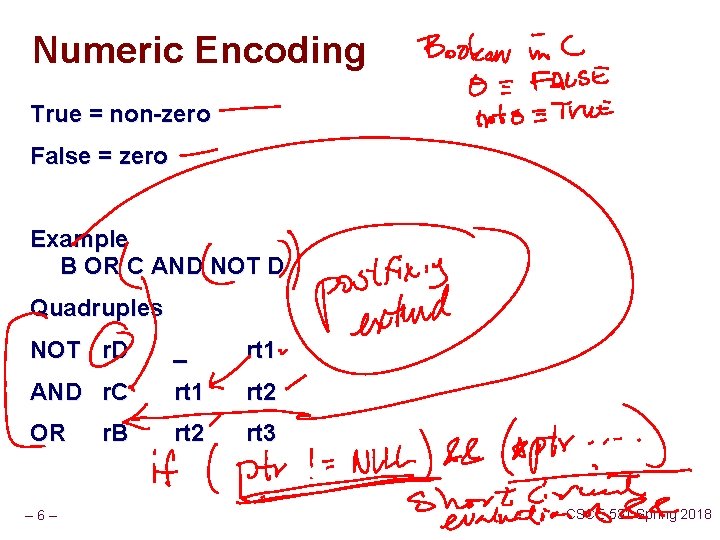 Numeric Encoding
Boolean in C
0 ≡ FALSE
not 0 ≡ True
True = non-zero
False = zero
Example
B OR C AND NOT D
postfixing
extend
Quadruples
NOT r.D _ rt1
AND r.C rt1 rt2
OR r.B rt2 rt3
if (ptr != NULL) && (*ptr ....)
Short Circuit
evaluation
– 6 –
CSCE 531 Spring 2018